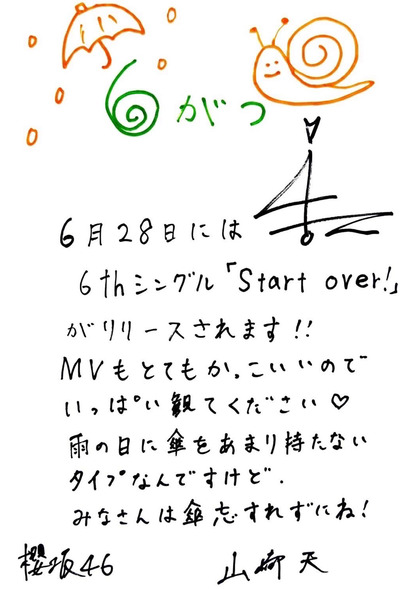 6がつ
6月28日には
6thシングル「Start over!」
がリリースされます!!
MVもとてもかっこいいので
いっぱい観てください♡
雨の日に傘をあまり持たない
タイプなんですけど.
みなさんは傘忘すれずにね!
櫻坂46 山﨑天